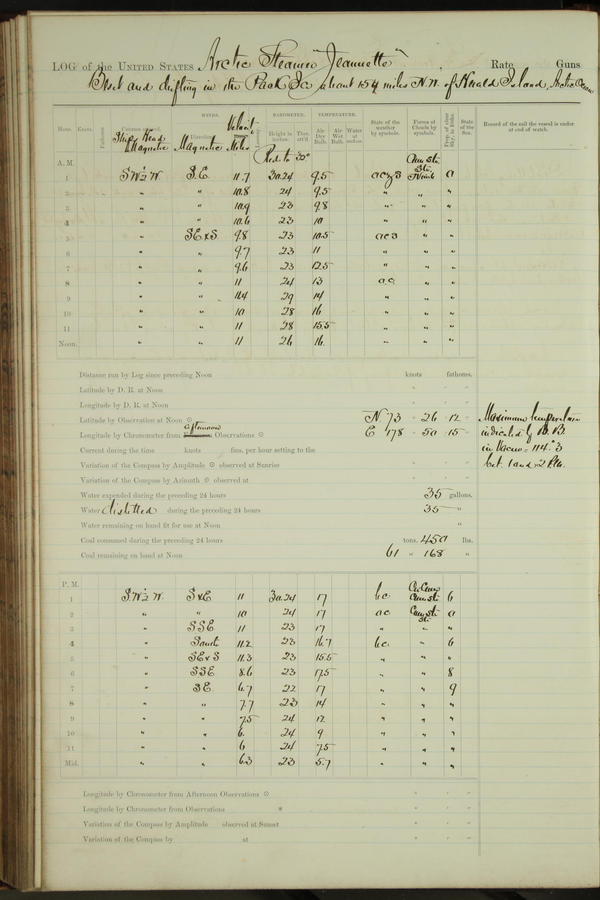 LOG of the UNITED STATES Arctic Steamer "Jeannette" Rate Guns
Beset and drifting in the Pack Ice about 154 miles N.W. of Herald Island, Arctic Ocean
WINDS. BAROMETER. TEMPERATURE.
Hour. Knots. Fathoms. Ship's Head Magnetic Direction Magnetic Velocity Miles Height in inches. Ther. att'd Air Dry Bulb. Air Wet Bulb. Water at surface. State of the weather by symbols. Forms of Clouds by symbols. Prop. of clear Sky in 10ths. State of the Sea. Record of the sail the vessel is under at end of watch.
Red. to 32°
A. M.
1 SW½W S.E 11.7 30.24 9.5 0
2 " " 10.8 24 9.5 " " "
3 " " 10.9 23 9.8 " " "
4 " " 10.6 23 10 " " "
5 " SE x S 9.8 23 10.5 " "
6 " " 9.7 23 11 " " "
7 " " 9.6 23 12.5 " " "
8 " " 11 24 13 " "
9 " " 11.4 29 14 " " "
10 " " 10 28 16 " " "
11 " " 11 28 15.5 " " "
Noon. " " 11 26 16 " " "
Distance run by Log since preceding Noon knots fathoms.
Latitude by D. R. at Noon
Longitude by D. R. at Noon
Latitude by Observation at Noon N 73 26 12
Longitude by Chronometer from afternoon Observations E 178 50 15
Maximum temperature
indicated by B. B.
in Vacuo = 114°.3
bet. 1 and 2 P.M.
Current during the time knots fms. per hour setting to the
Variation of the Compass by Amplitude observed at Sunrise
Variation of the Compass by Azimuth observed at
Water expended during the preceding 24 hours 35 gallons.
Water distilled during the preceding 24 hours 35 "
Water remaining on hand fit for use at Noon "
Coal consumed during the preceding 24 hours tons. 450 lbs.
Coal remaining on hand at Noon 61 " 168 "
P. M.
1 SW½W SxE 11 30.24 17 bc 6
2 " " 10 24 17 oc 0
3 " SSE 11 23 17 " " "
4 " South 11.2 23 16.7 bc " 6
5 " SE x S 11.3 23 15.5 " " "
6 " SSE 8.6 23 17.5 " " 8
7 " SE 6.7 22 17 " " 9
8 " " 7.7 23 14 " " "
9 " " 7.5 24 12 " " "
10 " " 6. 24 9 " " "
11 " " 6 24 7.5 " " "
Mid. " " 6.3 23 5.7 " " "
Longitude by Chronometer from Afternoon Observations
Longitude by Chronometer from Observations *
Variation of the Compass by Amplitude observed at Sunset
Variation of the Compass by at